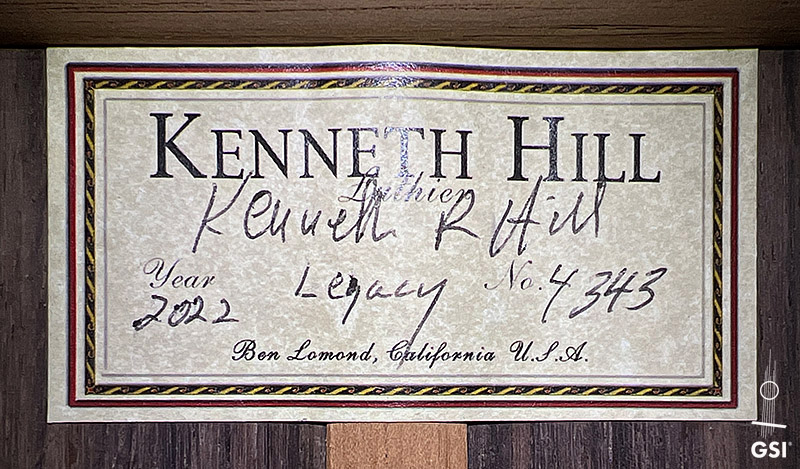 KENNETH HILL
Luthier
Kenneth R Hill
Year Legacy No. 4343
2022
Ben Lomond, California U.S.A.
GSI